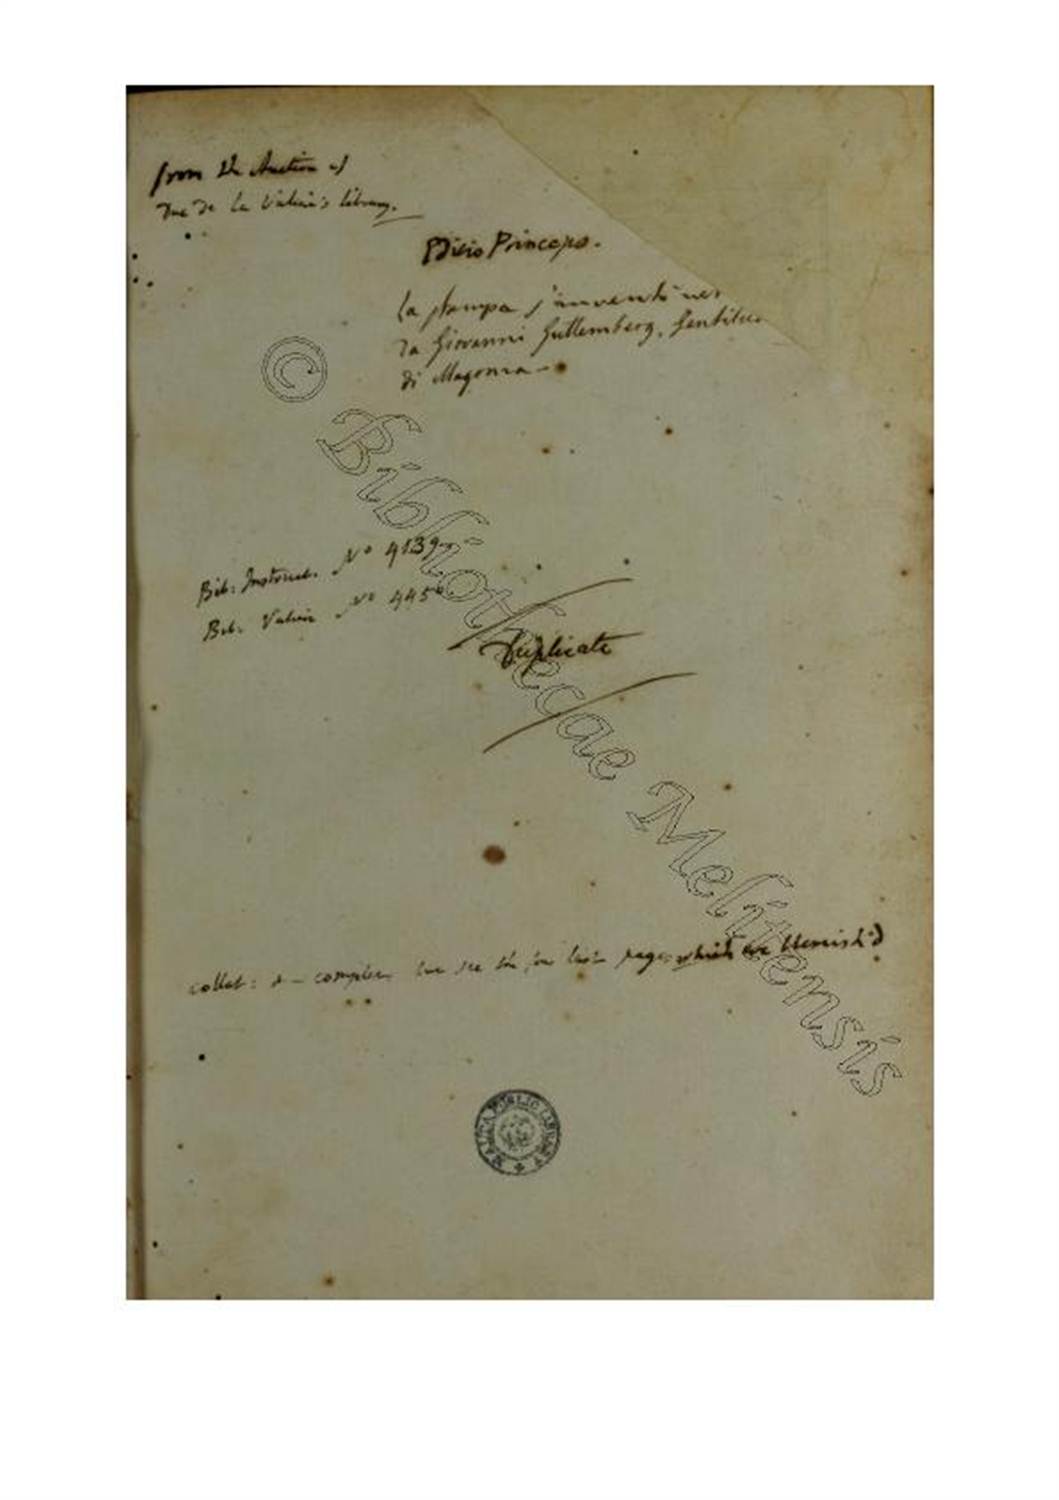 from the Auction of
Duc de la Valier's library.
Editio Princeps.
La stampa s'inventò nel
da Giovanni Guttemberg, Gentiluo
di Magonza
Bib: Instruct. No 4139
Bib. Valier No 445
Duplicate
collat: & complete last page which are blemish'd
MALTA PUBLIC LIBRARY
© Bibliothecae Melitensis